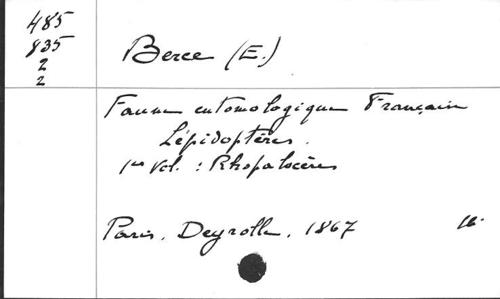 485
835
2
2
Berce (E.)
Faune entomologique Française
Lépidoptères.
1er Vol. : Rhopalocères
Paris. Deyrolle. 1867